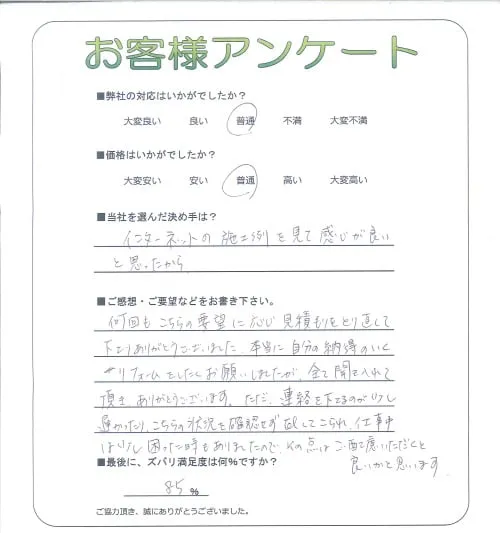 お客様アンケート
■弊社の対応はいかがでしたか?
大変良い 良い 普通 不満 大変不満
■価格はいかがでしたか?
大変安い 安い 普通 高い 大変高い
■当社を選んだ決め手は?
インターネットの施工例を見て感じが良い
と思ったから
■ご感想・ご要望などをお書き下さい。
何回もこちらの要望に応じ見積もりをとり直して
下さりありがとうございました。本当に自分の納得のいく
リフォームをしたくお願いしましたが、全て聞き入れて
頂き ありがとうございます。ただ、連絡を下さるのが少し
遅かったり、こちらの状況を確認せず話してこられ、仕事中
は少し困った時もありましたので、その点はご配慮いただくと
良いかと思います
■最後に、ズバリ満足度は何%ですか?
85 %
ご協力頂き、誠にありがとうございました。